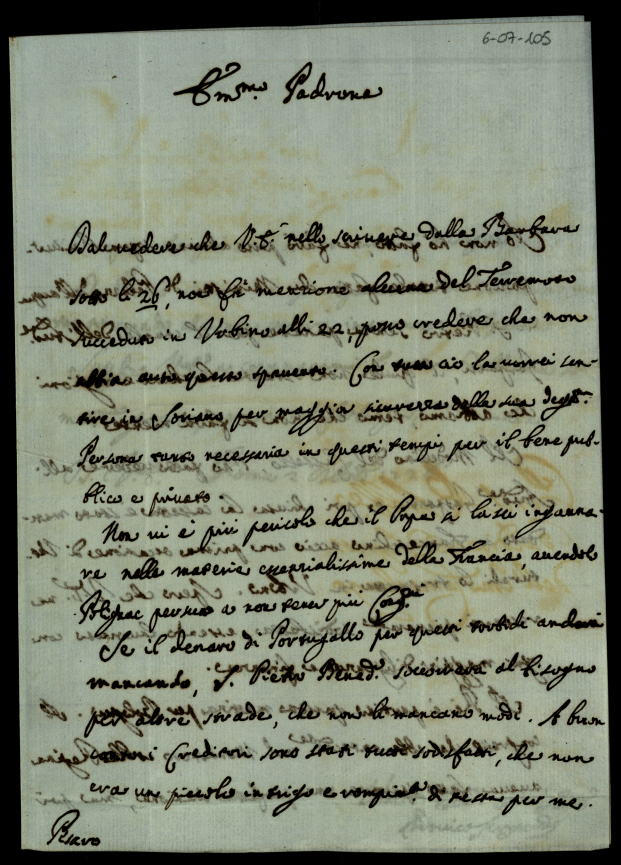 6-07-105
Em.mo Padrone
Dal vedere che V.E. nello scrivere dalla Barbara
sotto li 26, non fà menzione alcuna del Terremoto
succeduto in Urbino alli 22, posso credere che non
abbia auto questo spavento. Con tutto ciò la vorrei sen-
tire in Soriano per maggior sicurezza della sua degn.ma
Persona tanto necessaria in questi tempi per il bene pub-
blico e privato.
Non vi è più pericolo che il Papa si lasci inganna-
re nelle materie essenzialissime della Francia, avendole
Polignac persuaso a non tener più Cong.ni
Se il denaro di Portugallo per questi torbidi anderà
mancando, S. Pietro Bened.o soccorerà al bisogno
per altre strade, che non li mancano modi. A buon
i Creditori sono stati tutti sodisfatti, che non
era un piccolo intrigo e rompim.to di testa per me.
Pesaro